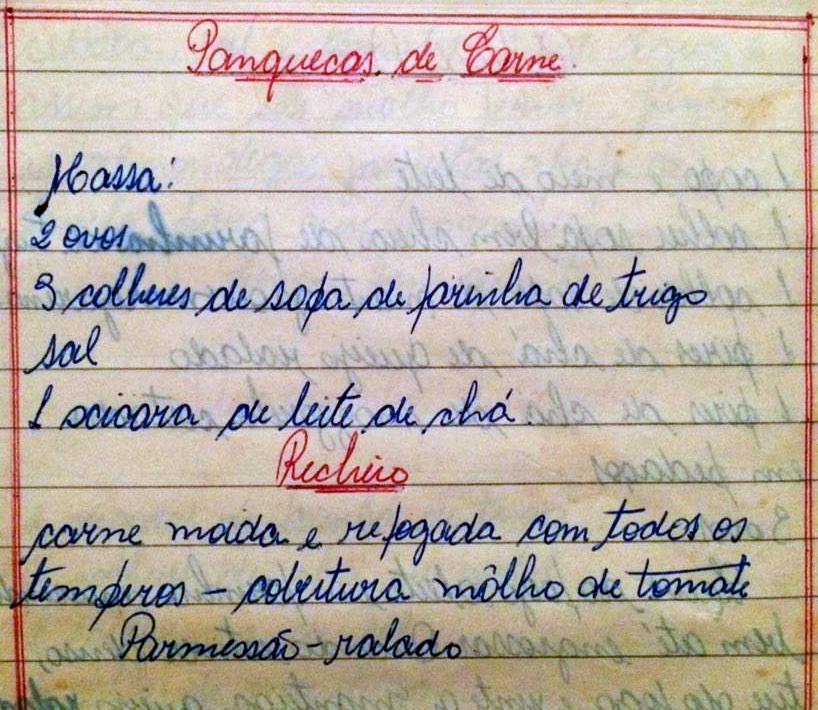 Panquecas de Carne
Massa:
2 ovos
3 colheres de sopa de farinha de trigo
sal
1 xicara de leite de chá
Recheio
carne moida e refogada com todos os
temperos - cobertura môlho de tomate
Parmessão - ralado